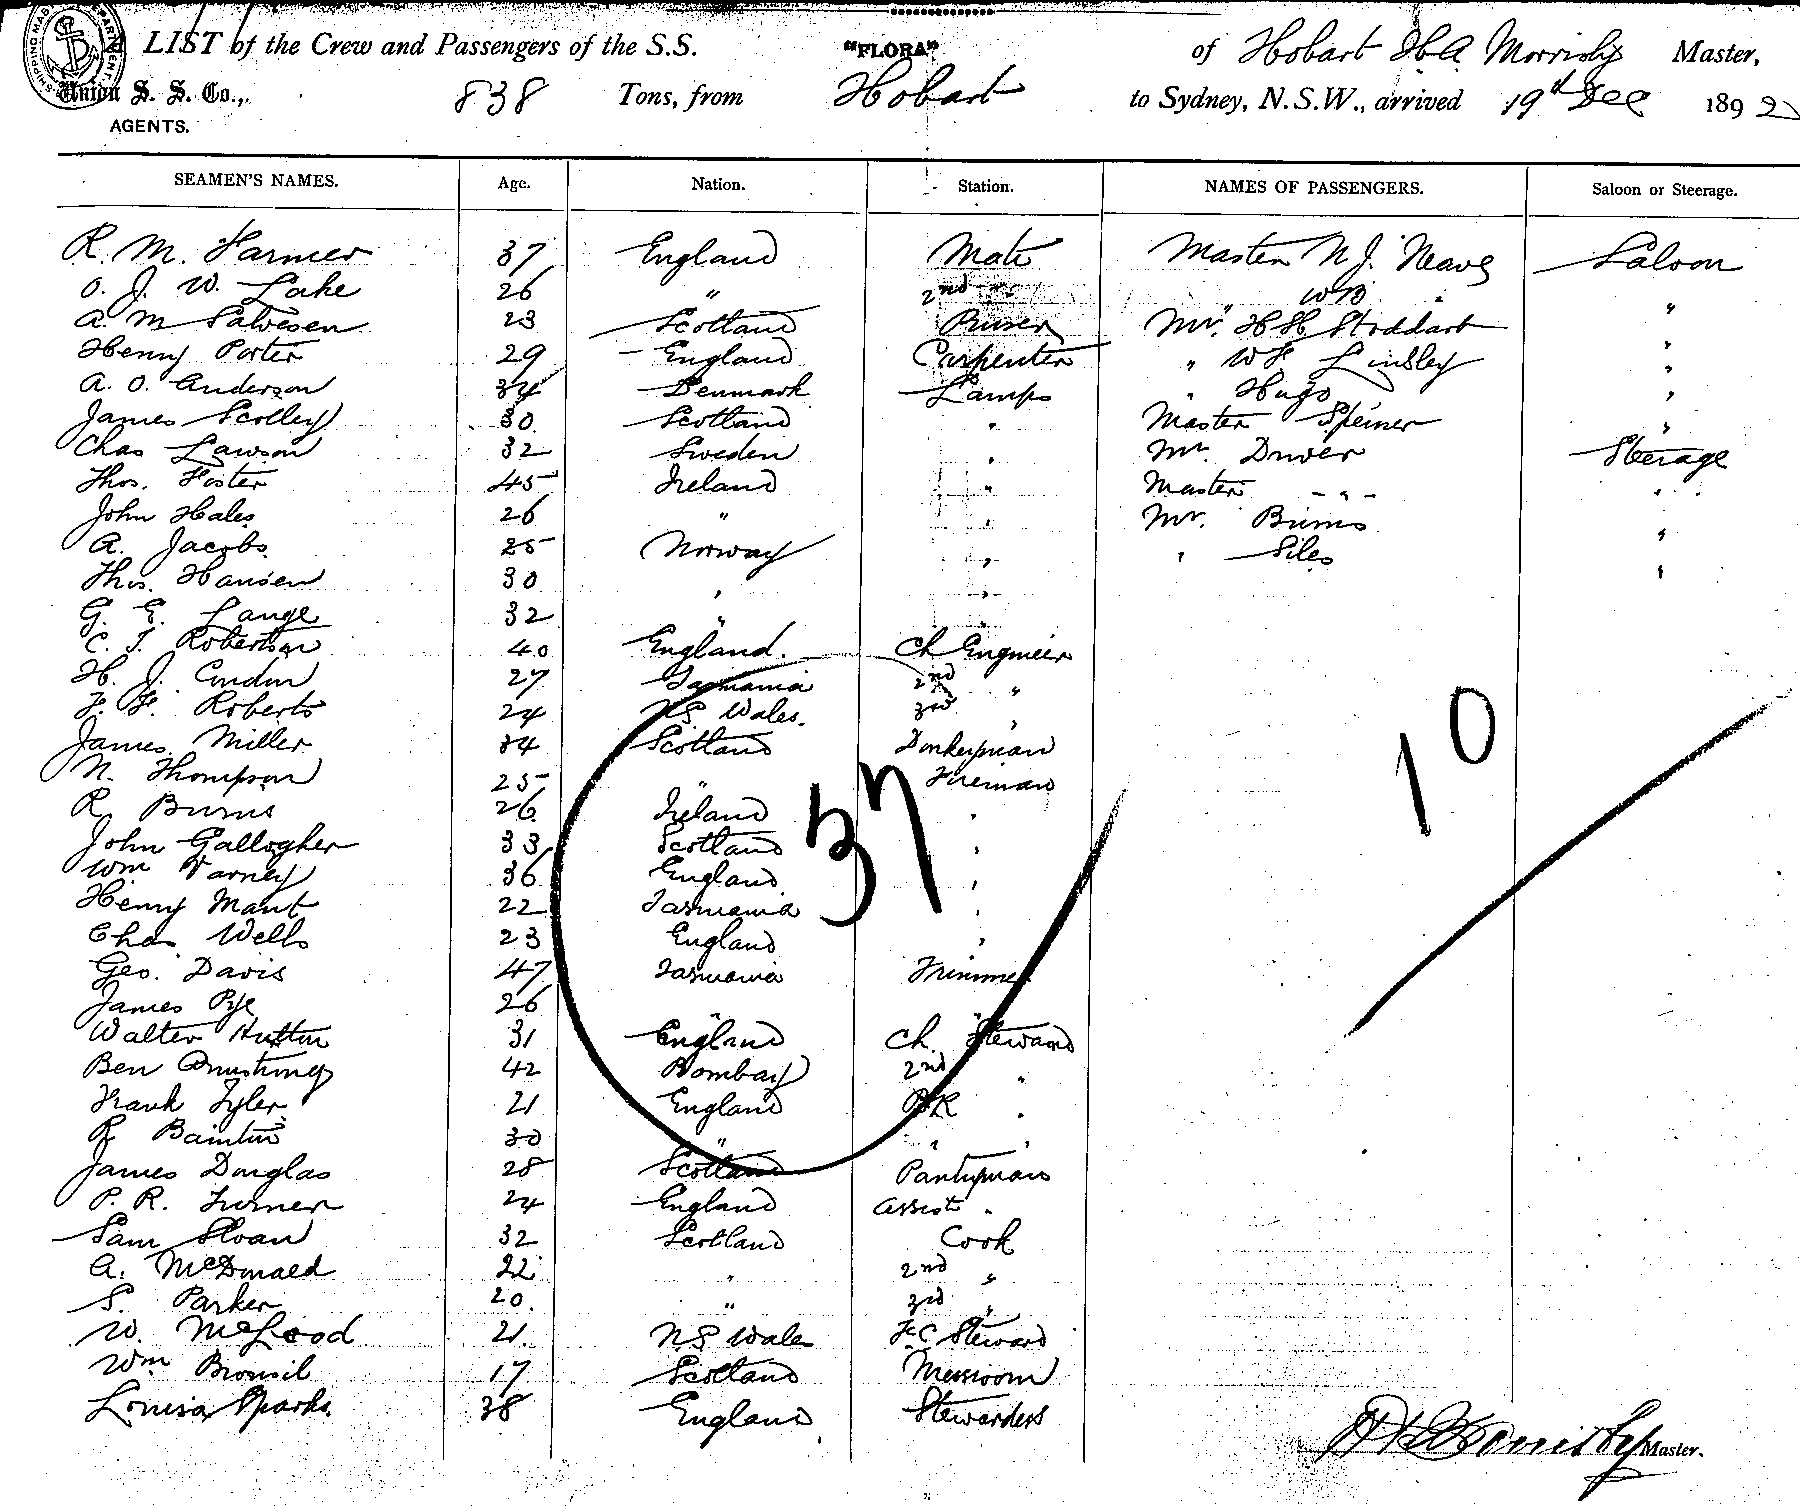 LIST of the Crew and Passengers of the S.S. "FLORA" of Hobart H.A. Morrisby Master,
Union S. S. Co., 838 Tons, from Hobart to Sydney, N.S.W., arrived 19th Dec 1892
AGENTS.
SEAMEN'S NAMES. Age. Nation. Station. NAMES OF PASSENGERS. Saloon or Steerage.
R. M. Farmer 37 England Mate Master N J. Neave Saloon
O. J. W. Lake 26 " 2nd " " WB " "
A. M Salvesen 23 Scotland Purser Mr. H H Stoddart "
Henry Porter 29 England Carpenter " W F. Lindley "
A. O. Anderson 34 Denmark Lamps " Hugo "
James Scolley 30 Scotland " Master Speiner "
Chas Lawson 32 Sweden " Mr. Driver Steerage
Thos. Foster 45 Ireland " Master - " - "
John Hales 26 " " Mr. Burns "
A. Jacobs 25 Norway " " Siles "
Thos. Hansen 30 " "
G. E. Lange 32 " "
C. T. Robertson 40 England. Ch Engineer
H. J. Condon 27 Tasmania 2nd "
F. F. Roberts 24 N.S. Wales. 3rd "
James Miller 34 Scotland Donkeyman
N. Thompson 25 " Fireman
R Burns 26 Ireland "
John Gallogher 33 Scotland "
Wm Varney 36 England "
Henry Mant 22 Tasmania "
Chas Wells 23 England "
Geo. Davis 47 Tasmania Trimmer
James Pye 26 " "
Walter Hutton 31 England Ch. Steward
Ben Armstrong 42 Bombay 2nd "
Frank Tyler 21 England BR "
R Bainton 30 " " "
James Douglas 28 Scotland Pantryman
P. R. Turner 24 England Assist "
Sam Sloan 32 Scotland Cook
A. McDonald 22 " 2nd "
S. Parker 20. " 3rd "
W. McLeod 21 N.S Wales F.C Steward
Wm 17 Scotland Messroom
Louisa Sparks 38 England Stewardess
37
10
H A Morrisby Master.